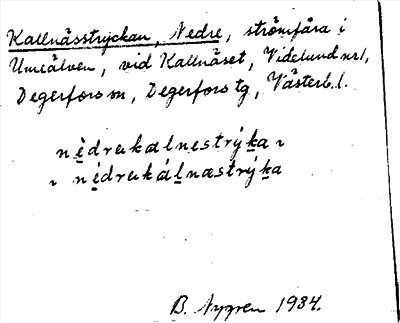 Kallnässtryckan, Nedre, strömfåra i
Umeälven, vid Kallnäset, Videlund nr 1,
Degerfors sn, Degerfors tg, Västerb. l.
nèdrɐkalnɛstrýka
nédrɐkálnæstrýka
B. Nygren 1934.